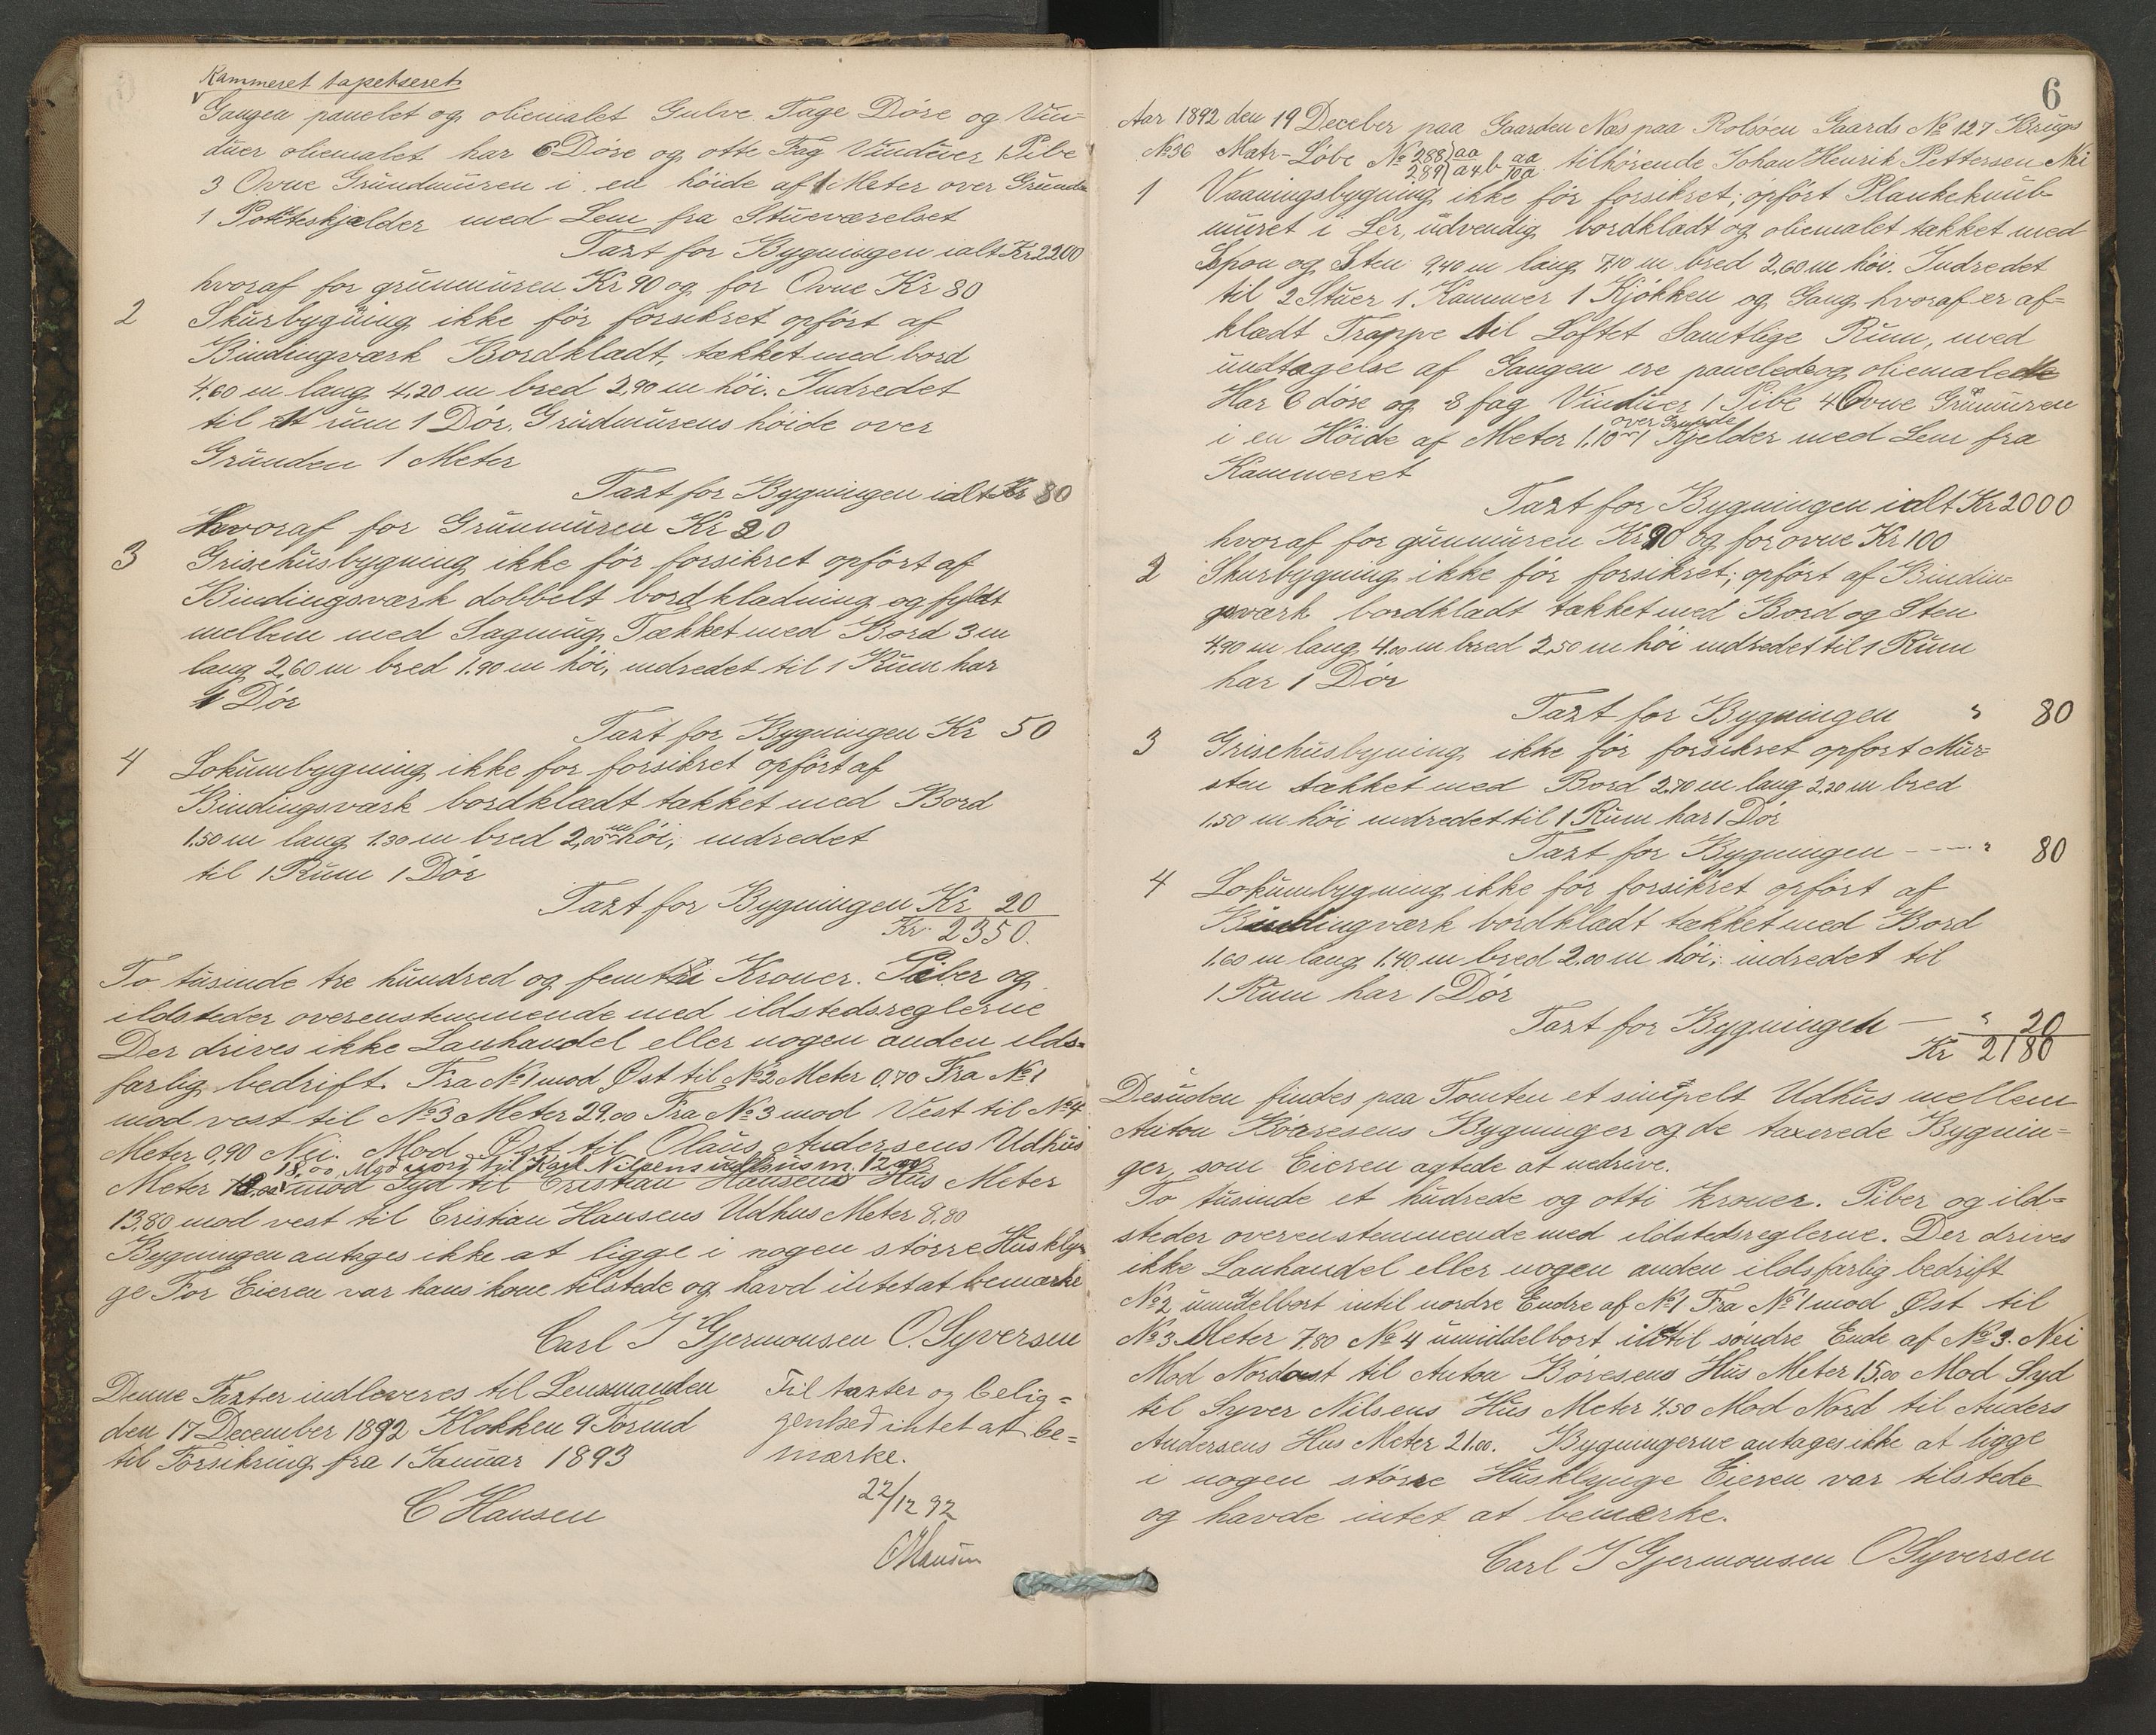 Kammeret tapetseret
Gangen panelet og oliemalet Gulve Tage Döre og Vin-
duer oliemalet har 6 Döre og otte Fag Vinduer 1 Pibe
3 Ovne Grundmuren i en höide af 1 Meter over Grunden
1 Potteterskjælder med Lem fra Stueværelset
Taxt for Bygningen ialt Kr 2200
hvoraf for grunmuren Kr 90 og for Ovne Kr 80
2 Skurbygning ikke för forsikret opfört af
Bindingværk Bordklædt, tækket med bord
4,60 m lang 4,20 m bred 2,90 m höi. Indredet
til 1 rum 1 Dör. Grudmurens höide over
Grunden 1 Meter
Taxt for Bygningen ialt Kr 80
Hvoraf for Grunmuren Kr 20
3 Grisehusbygning ikke för forsikret opfört af
Bindingsværk dobbelt bordklædning og fyldt
mellem med Sagmug, Tækket med Bord 3 m
lang 2,60 m bred 1.90 m höi, indredet til 1 Rum har
1 Dör
Taxt for Bygningen Kr 50
4 Lokumbygning ikke for forsikret opfört af
Bindingsværk bordklædt tækket med Bord
1.50 m lang 1.30 m bred 2,00 m höi, indredet
til 1 Rum 1 Dör
Taxt for Bygningen Kr 20
Kr. 2350.
To tusinde tre hundred og femti Kroner. Piber og
ildsteder overenstemmende med ildstedsreglerne
Der drives ikke Lanhandel eller nogen anden ilds-
farlig bedrift. Fra No 1 mod Øst til No 2 Meter 0,70 Fra No 1
mod vest til No 3 Meter 29.00 Fra No 3 mod Vest til No 4
Meter 0,90 Nei. Mod Øst til Olaus Andersens Udhus
18,00 Mod nord til Karl Nilsens udhus m. 12,00
Meter mod Syd til Cristian Hansens Hus Meter
13,80 mod vest til Cristian Hansens Udhus Meter 8,80
Bygningen antages ikke at ligge i nogen större Huskly-
ge For Eieren var hans kone tilstede og havd intet at bemærke
Carl J Gjermonsen O. Syversen
Denne Taxter indleveres til Lensmanden
den 17 December 1892 Klokken 9 Formd
til Forsikring fra 1 Januar 1893
C Hansen
Til taxter og belig-
genhed intet at be-
mærke.
22/12 92
CHansen
6
Aar 1892 den 19 Deceber paa Gaarden Næs paa Rolsöen Gaards No 127 Brugs
No 36 Matr-Löbe No 288) aa 289) a4b aa 10a tilhörende Johan Henrik Pettersen Nei
1 Vaaningsbygning ikke för forsikret; opfört Plankeknub
muret i Ler, udvendig bordklædt og oliemalet tækket med
Spon og Sten 9,40 m lang 7,10 m bred 2,60 m höi. Indredet
til 2 Stuer 1. Kammer 1 Kjökken og Gang hvoraf er af-
klædt Trappe til Loftet Samtlige Rum, med
undtagelse af Gangen ere panelede og oliemalede
Har 6 döre og 8 fag Vinduer 1 Pibe 4 Ovne Grunmuren
i en Höide af Meter 1,10 over Grunde 1 Kjelder med Lem fra
Kammeret
Taxt for Bygningen ialt Kr 2000
hvoraf for gunmuren Kr 90 og for ovne Kr 100
2 Skurbygning ikke för forsikret; opfört af Bindin-
gsværk bordklædt tækket med Bord og Sten
4,90 m lang 4,00 m bred 2,50 m höi indredet til 1 Rum
har 1 Dör
Taxt for Bygningen " 80
3 Grisehusbyning ikke för forsikret opfort Mur-
sten tækket med Bord 2,70 m lang 2,20 m bred
1,50 m höi indredet til 1 Rum har 1 Dör
Taxt for Bygningen - - - " 80
4 Lokumbygning ikke för forsikret opfört af
Bindingværk bordklædt tækket med Bord
1.60 m lang 1.40 m bred 2.00 m höi; indredet til
1 Rum har 1 Dör
Taxt for Bygningen — " 20
Kr 2180
Desuden findes paa Tomten et simpelt Udhus mellem
Anton Böresens Bygninger og de taxerede Bygnin-
ger, som Eieren agtede at nedrive.
To tusinde et hudrede og otti kroner. Piber og ild-
steder overenstemmende med ildstedsreglerne. Der drives
ikke Lanhandel eller nogen anden ildsfarlig bedrift
No 2 umidelbort intil nordre Endre af No 1 Fra No 1 mod Øst til
No 3 Meter 7.80 No 4 umiddelbort intil söndre Ende af No 3. Nei
Mod Nordost til Anton Böresens Hus Meter 15,00 Mod Syd
til Syver Nilsens Hus Meter 4.50 Mod Nord til Anders
Andersens Hus Meter 21.00. Bygningerne antages ikke at ligge
i nogen större Husklynge Eieren var tilstede
og havde intet at bemærke.
Carl J Gjermonsen O Syversen